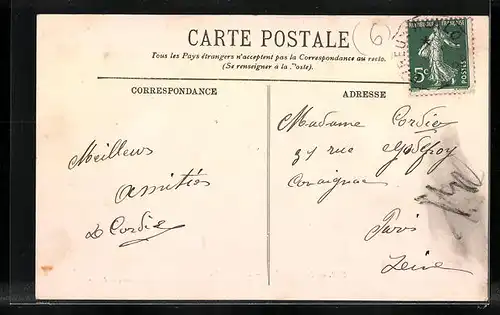 CARTE POSTALE
Tous les Pays étrangers n'acceptent pas la Correspondance au recto.
(Se renseigner à la Poste).
6
5c
POSTES
CORRESPONDANCE
ADRESSE
Meilleurs
amitiés
Cordie
Madame Cordie
37 rue Godefroy
Cavaignac
Paris
Seine